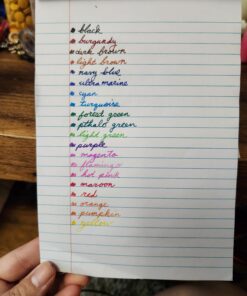 black
burgundy
dark brown
light brown
navy blue
ultramarine
cyan
turquoise
forest green
pthalo green
light green
purple
magenta
flamingo
hot pink
maroon
red
orange
pumpkin
yellow